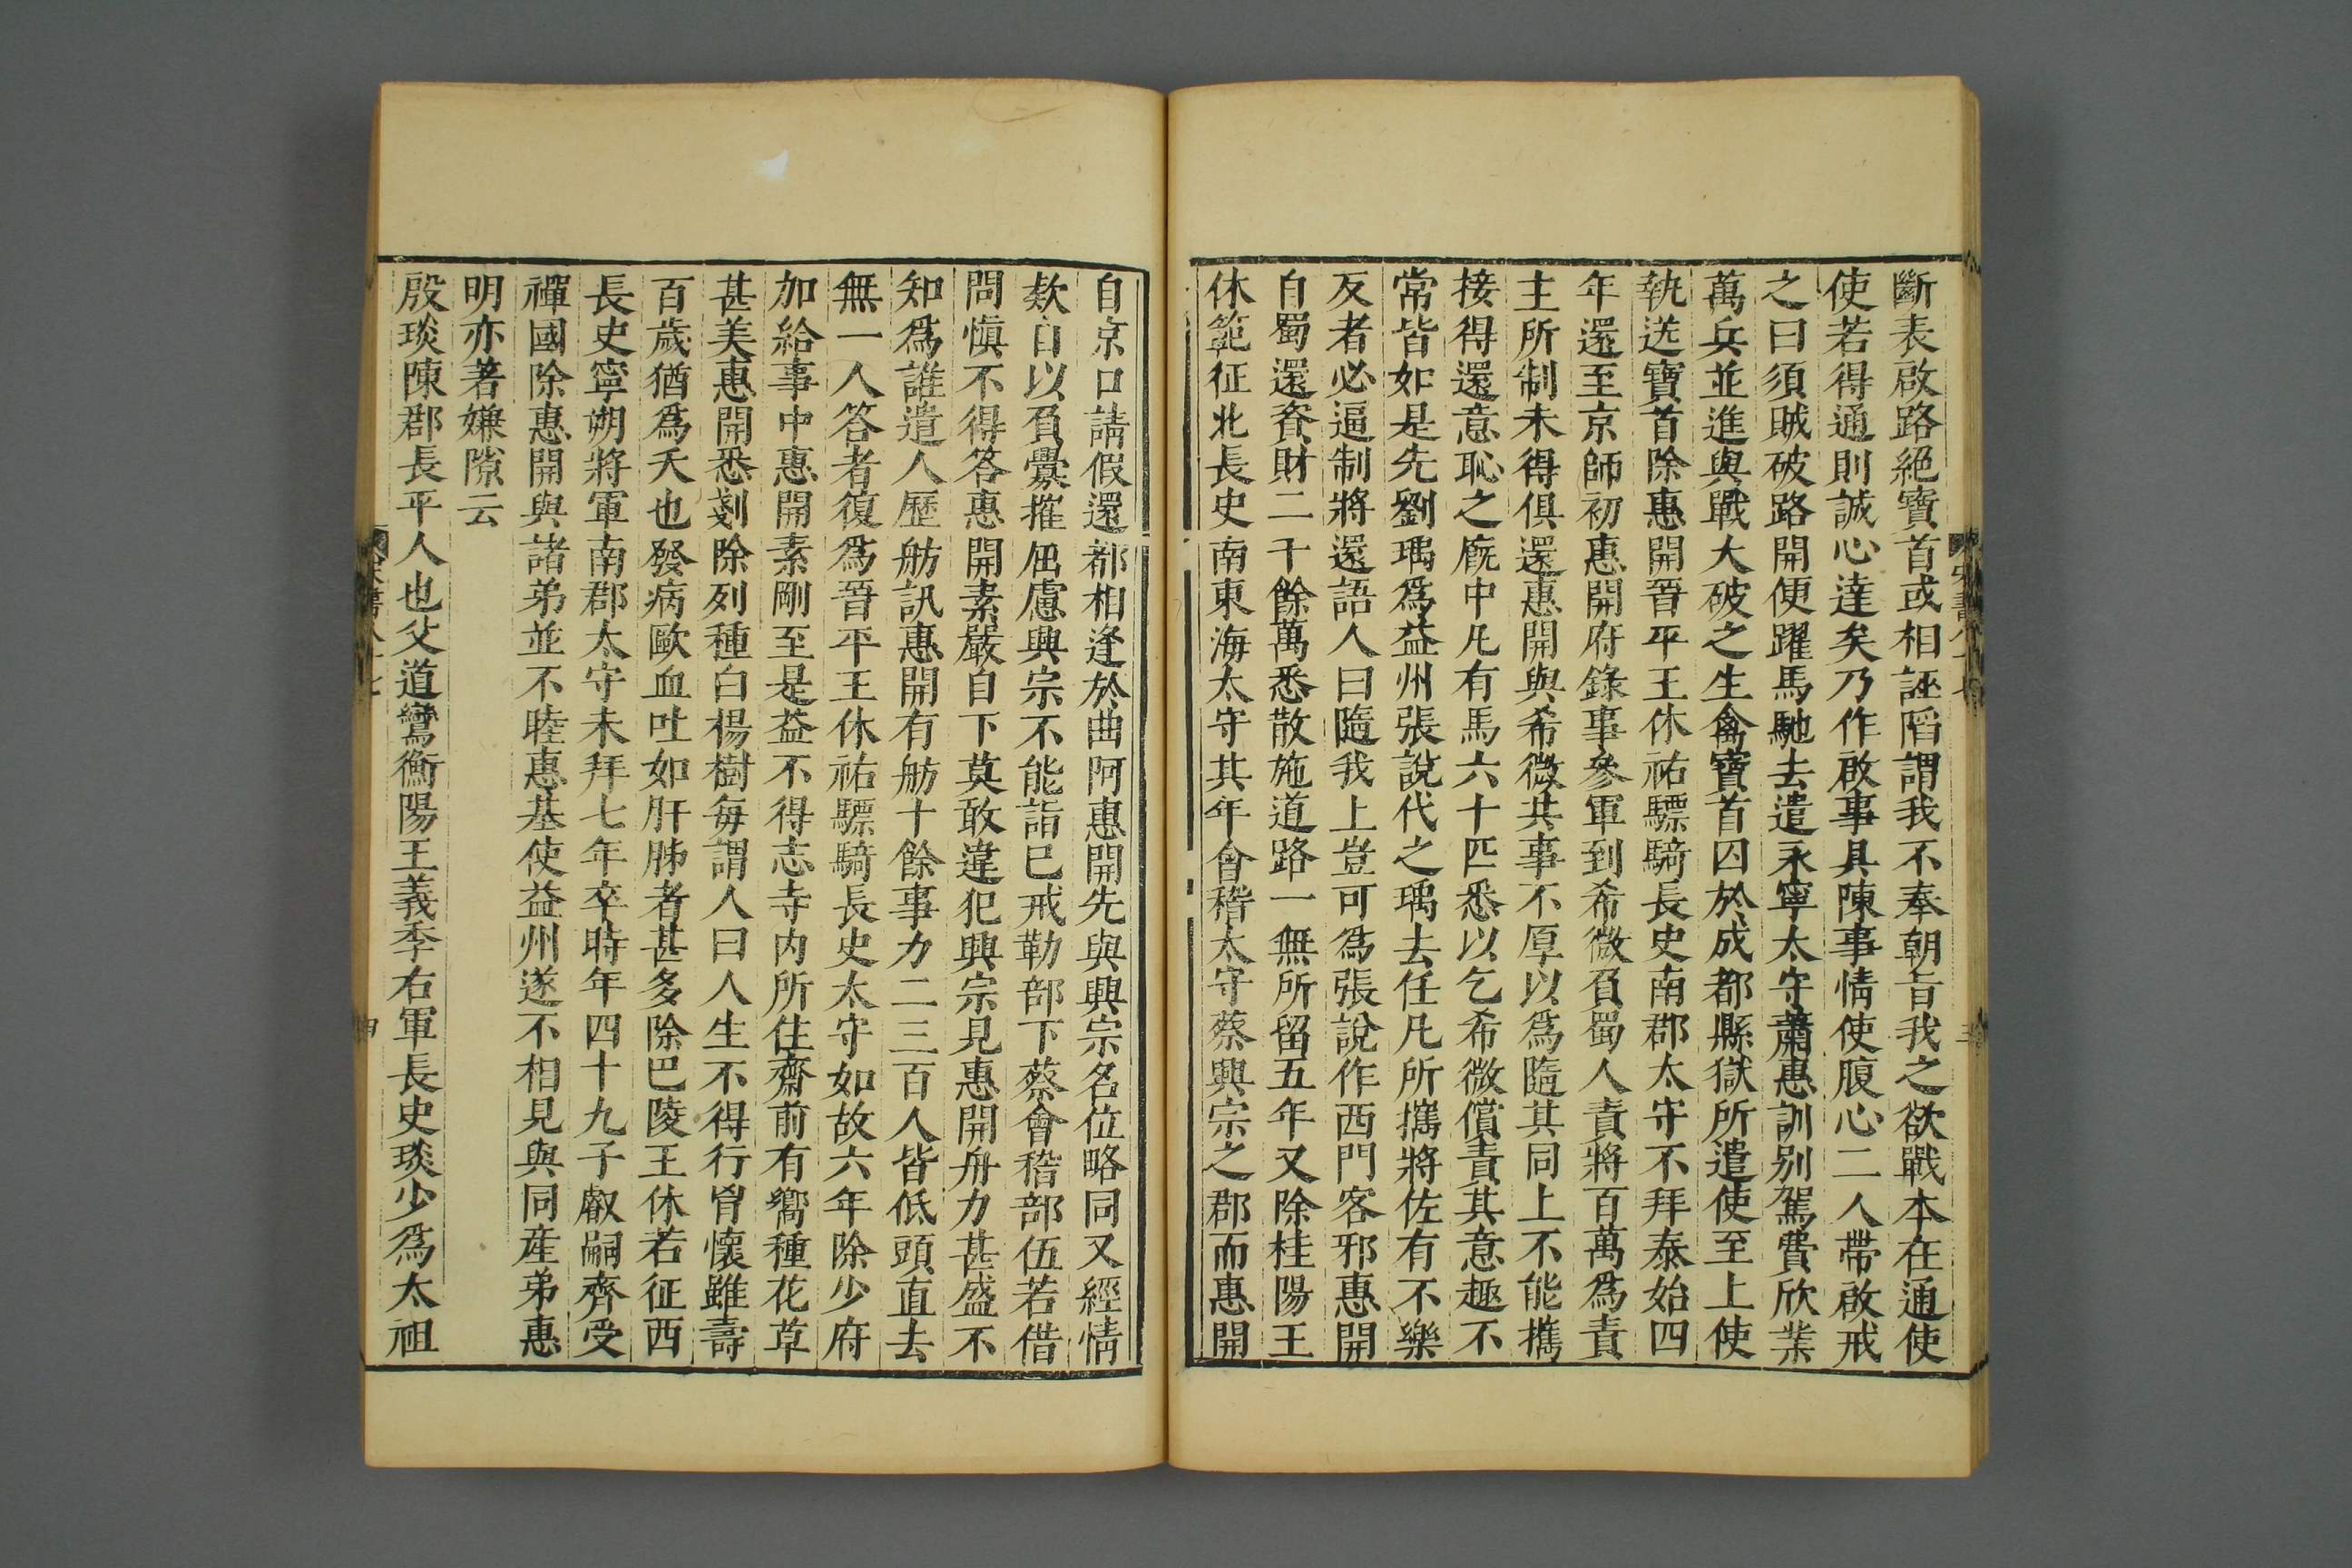 斷表啟路絕寶首或相誣䧟謂我不奉朝旨我之欲戰本在通使
使若得通則誠心達矣乃作啟事具陳事情使腹心二人帶啟戒
之曰須賊破路開便躍馬馳去遣永寧太守蕭惠訓别駕費欣業
萬兵並進與戰大破之生禽寶首囚於成都縣獄所遣使至上使
執送寶首除惠開晉平王休祐驃騎長史南郡太守不拜泰始四
年還至京師初惠開府錄事參軍到希微負蜀人責將百萬爲責
主所制未得俱還惠開與希微共事不厚以爲隨其同上不能攜
接得還意恥之廐中凡有馬六十匹悉以乞希微償責其意趣不
常皆如是先劉瑀爲益州張說代之瑀去任凡所攜將佐有不樂
反者必逼制將還語人曰隨我上豈可爲張說作西門客邪惠開
自蜀還資財二千餘萬悉散施道路一無所留五年又除桂陽王
休範征北長史南東海太守其年會稽太守蔡興宗之郡而惠開
自京口請假還都相逢於曲阿惠開先與興宗名位略同又經情
欵自以負釁摧屈慮興宗不能詣已戒勒部下蔡會稽部伍若借
問愼不得答惠開素嚴自下莫敢違犯興宗見惠開舟力甚盛不
知爲誰遣人歷舫訊惠開有舫十餘事力二三百人皆低頭直去
無一人答者復爲晉平王休祐驃騎長史太守如故六年除少府
加給事中惠開素剛至是益不得志寺内所住齋前有嚮種花草
甚美惠開悉剗除列種白楊樹毎謂人曰人生不得行胷懷雖壽
百歲猶爲夭也發病歐血吐如肝肺者甚多除巴陵王休若征西
長史寧朔將軍南郡太守未拜七年卒時年四十九子叡嗣齊受
禪國除惠開與諸弟並不睦惠基使益州遂不相見與同産弟惠
明亦著嫌隙云
殷琰陳郡長平人也父道鸞衡陽王義季右軍長史琰少爲太祖